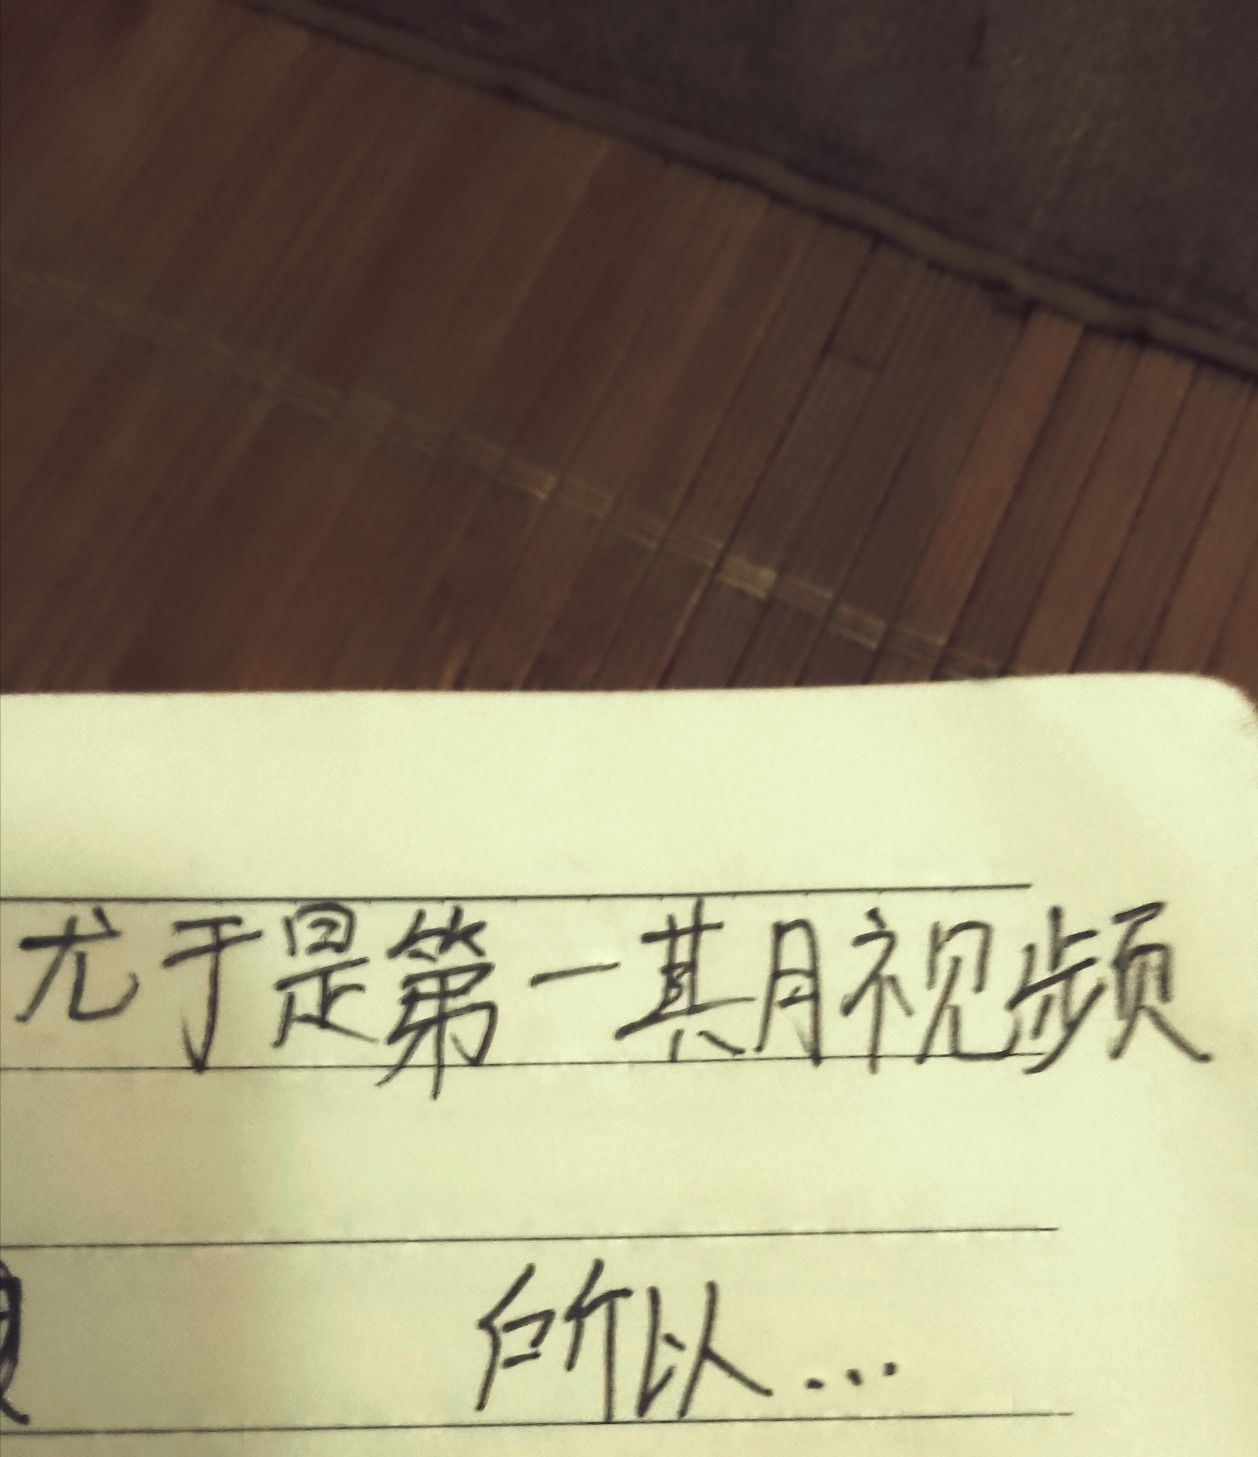 尤于是第一期视频
所以...